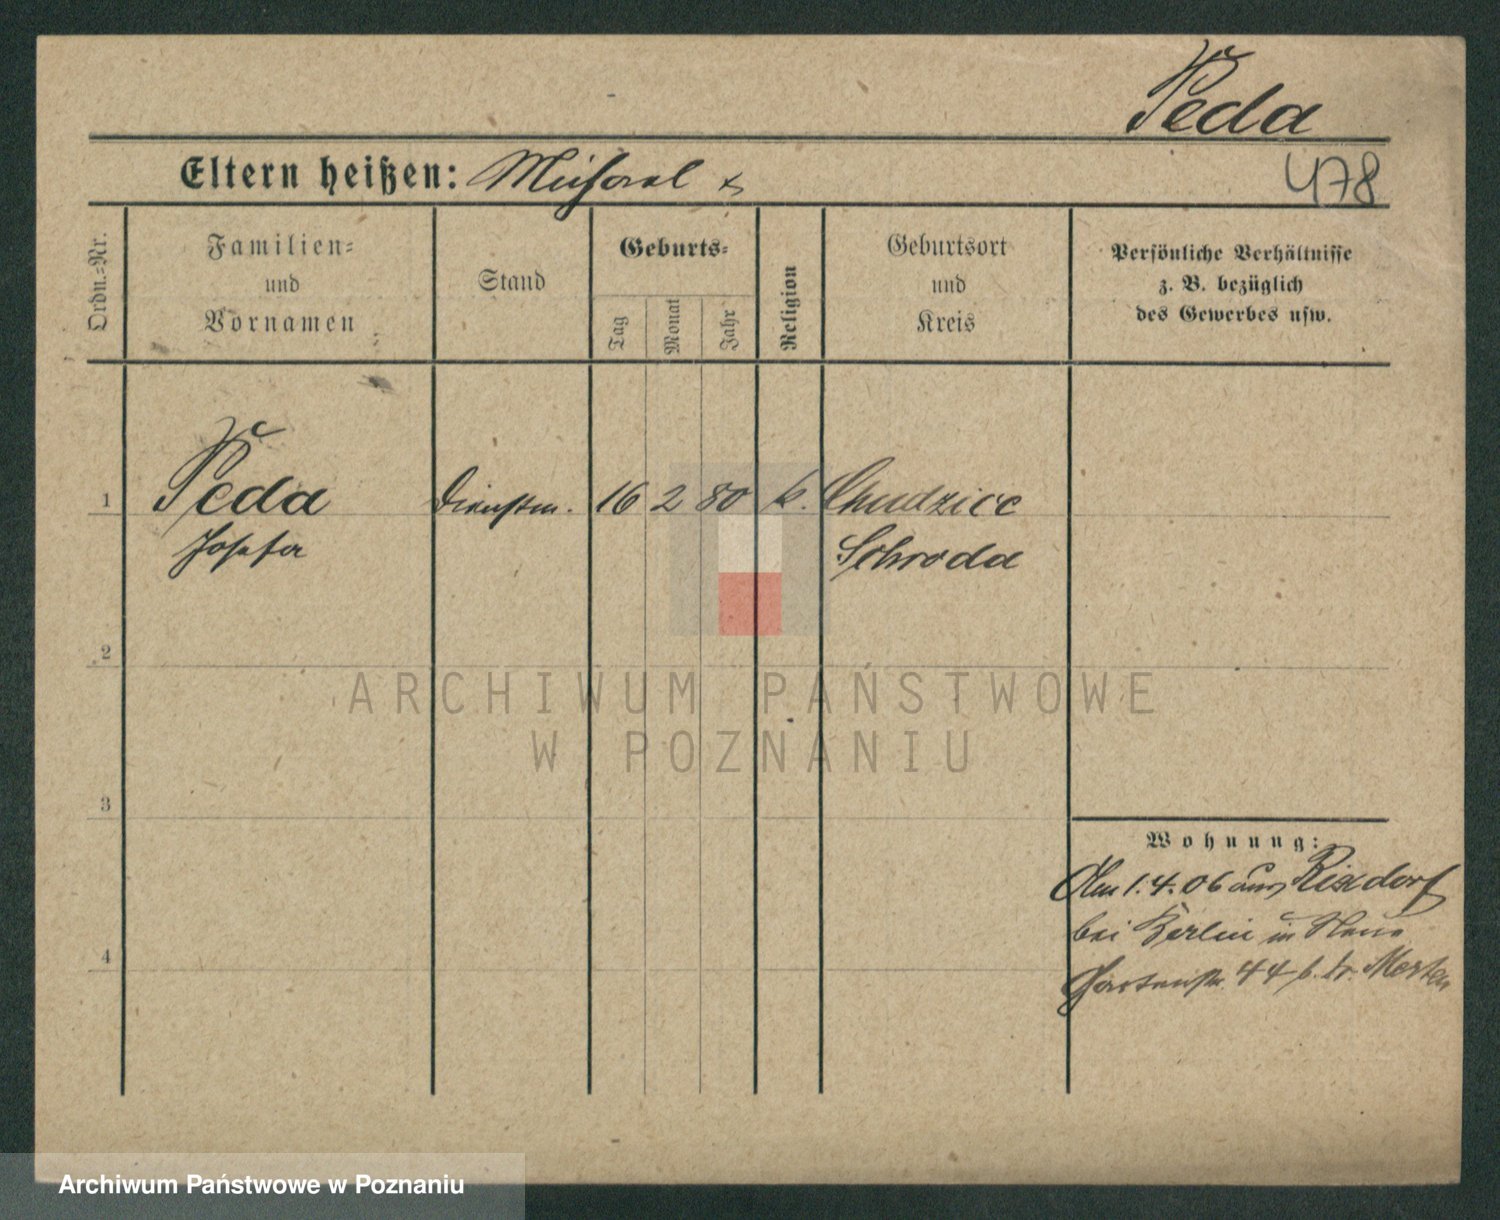 Peda
Eltern heißen: Michael
478
Ordn.=Nr.
Familien=
und
Vornamen
Stand
Geburts=
Tag
Monat
Jahr
Religion
Geburtsort
und
Kreis
Persönliche Verhältnisse
z. B. bezüglich
des Gewerbes usw.
1 Peda Dienstm. 16 2 80 k. Chudzice
Josefa Schroda
2
ARCHIWUM PAŃSTWOWE
W POZNANIU
3
Wohnung:
Am 1.4.06 aus Rixdorf
bei Berlin in Neue
4
Gartenstr. 44 b. Merten
Archiwum Państwowe w Poznaniu